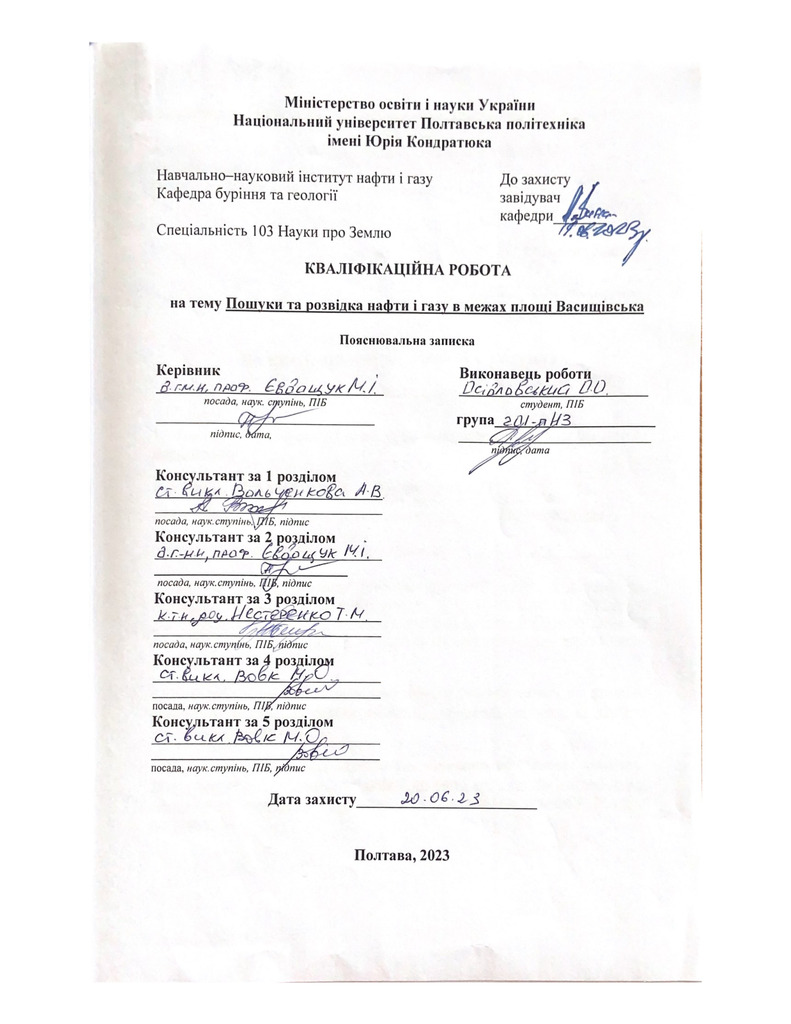 Міністерство освіти і науки України
Національний університет Полтавська політехніка
імені Юрія Кондратюка
Навчально–науковий інститут нафти і газу
Кафедра буріння та геології
Спеціальність 103 Науки про Землю
До захисту
завідувач
кафедри
КВАЛІФІКАЦІЙНА РОБОТА
на тему Пошуки та розвідка нафти і газу в межах площі Васищівська
Пояснювальна записка
Керівник
д.г-м.н, проф. Євдощук М.І.
посада, наук. ступінь, ПІБ
підпис, дата,
Виконавець роботи
Осідловський О.О.
студент, ПІБ
група 201-пНЗ
підпис, дата
Консультант за 1 розділом
ст. викл. Вольченкова А.В.
посада, наук.ступінь, ПІБ, підпис
Консультант за 2 розділом
д.г-м.н, проф. Євдощук М.І.
посада, наук.ступінь, ПІБ, підпис
Консультант за 3 розділом
к.т.н, доц. Нестеренко Т.М.
посада, наук.ступінь, ПІБ, підпис
Консультант за 4 розділом
ст. викл. Вовк М.О.
посада, наук.ступінь, ПІБ, підпис
Консультант за 5 розділом
ст. викл. Вовк М.О.
посада, наук.ступінь, ПІБ, підпис
Дата захисту 20.06.23
Полтава, 2023